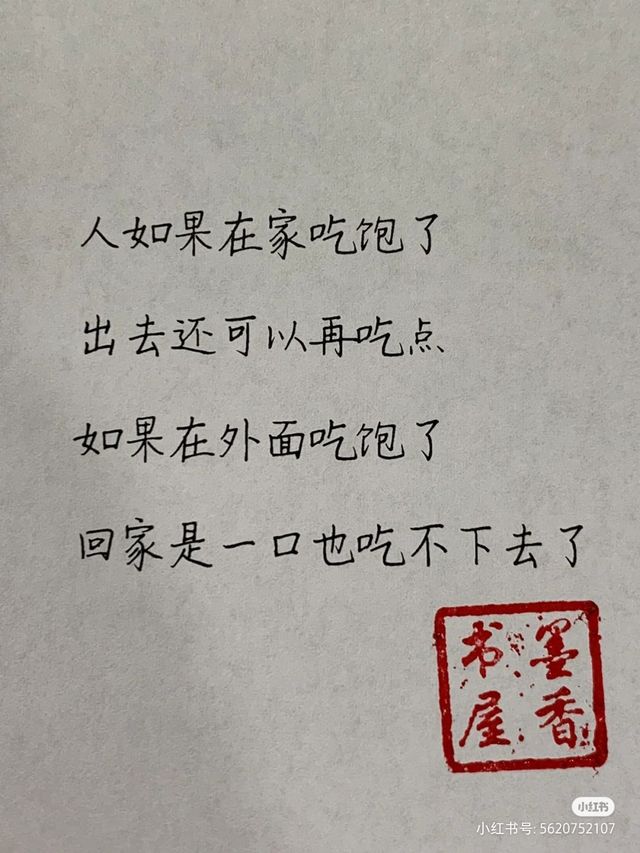 人如果在家吃饱了
出去还可以再吃点
如果在外面吃饱了
回家是一口也吃不下去了
墨香
书屋
小红书
小红书号: 5620752107